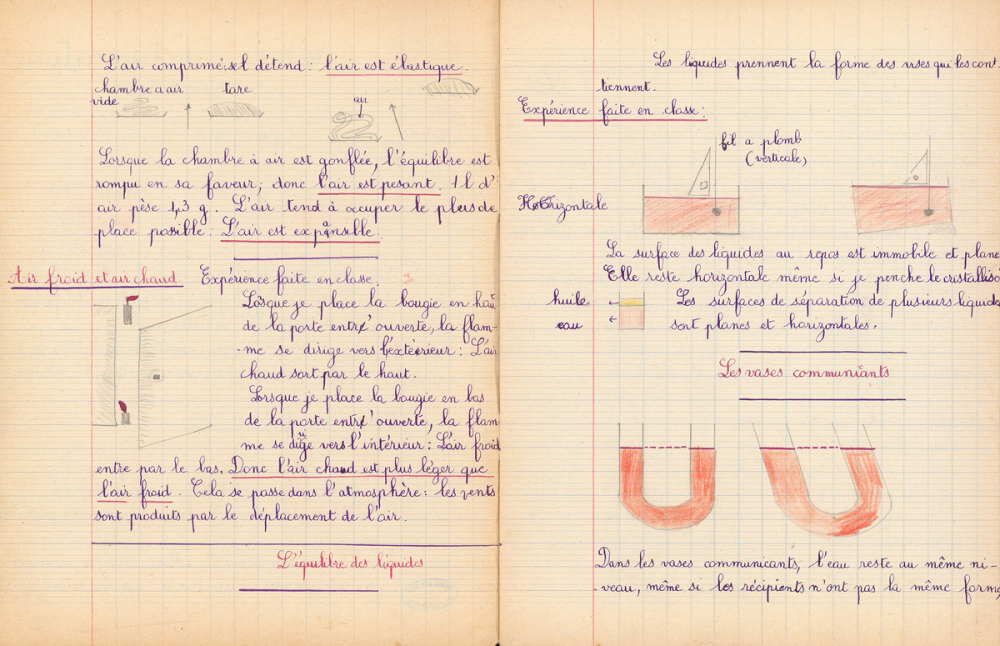 L'air comprimé se détend : l'air est élastique.
chambre à air tare
vide
air
Lorsque la chambre à air est gonflée, l'équilibre est
rompu en sa faveur; donc l'air est pesant. 1 l d'
air pèse 1,3 g. L'air tend à occuper le plus de
place possible : L'air est expansible.
Air froid et air chaud Expérience faite en classe.
Lorsque je place la bougie en hau
de la porte entr'ouverte, la flam-
-me se dirige vers l'extérieur : L'air
chaud sort par le haut.
Lorsque je place la bougie en bas
de la porte entr'ouverte, la flam
me se dirige vers l'intérieur : L'air froid
entre par le bas. Donc l'air chaud est plus léger que
l'air froid. Cela se passe dans l'atmosphère : les vents
sont produits par le déplacement de l'air.
L'équilibre des liquides
Les liquides prennent la forme des vases qui les cont
tiennent.
Expérience faite en classe :
fil a plomb
(verticale)
Horizontale
La surface des liquides au repos est immobile et plane
Elle reste horizontale même si je penche le cristalliso
huile Les surfaces de séparation de plusieurs liquide
eau sont planes et horizontales.
Les vases communiants
Dans les vases communicants, l'eau reste au même ni-
-veau, même si les récipients n'ont pas la même forme